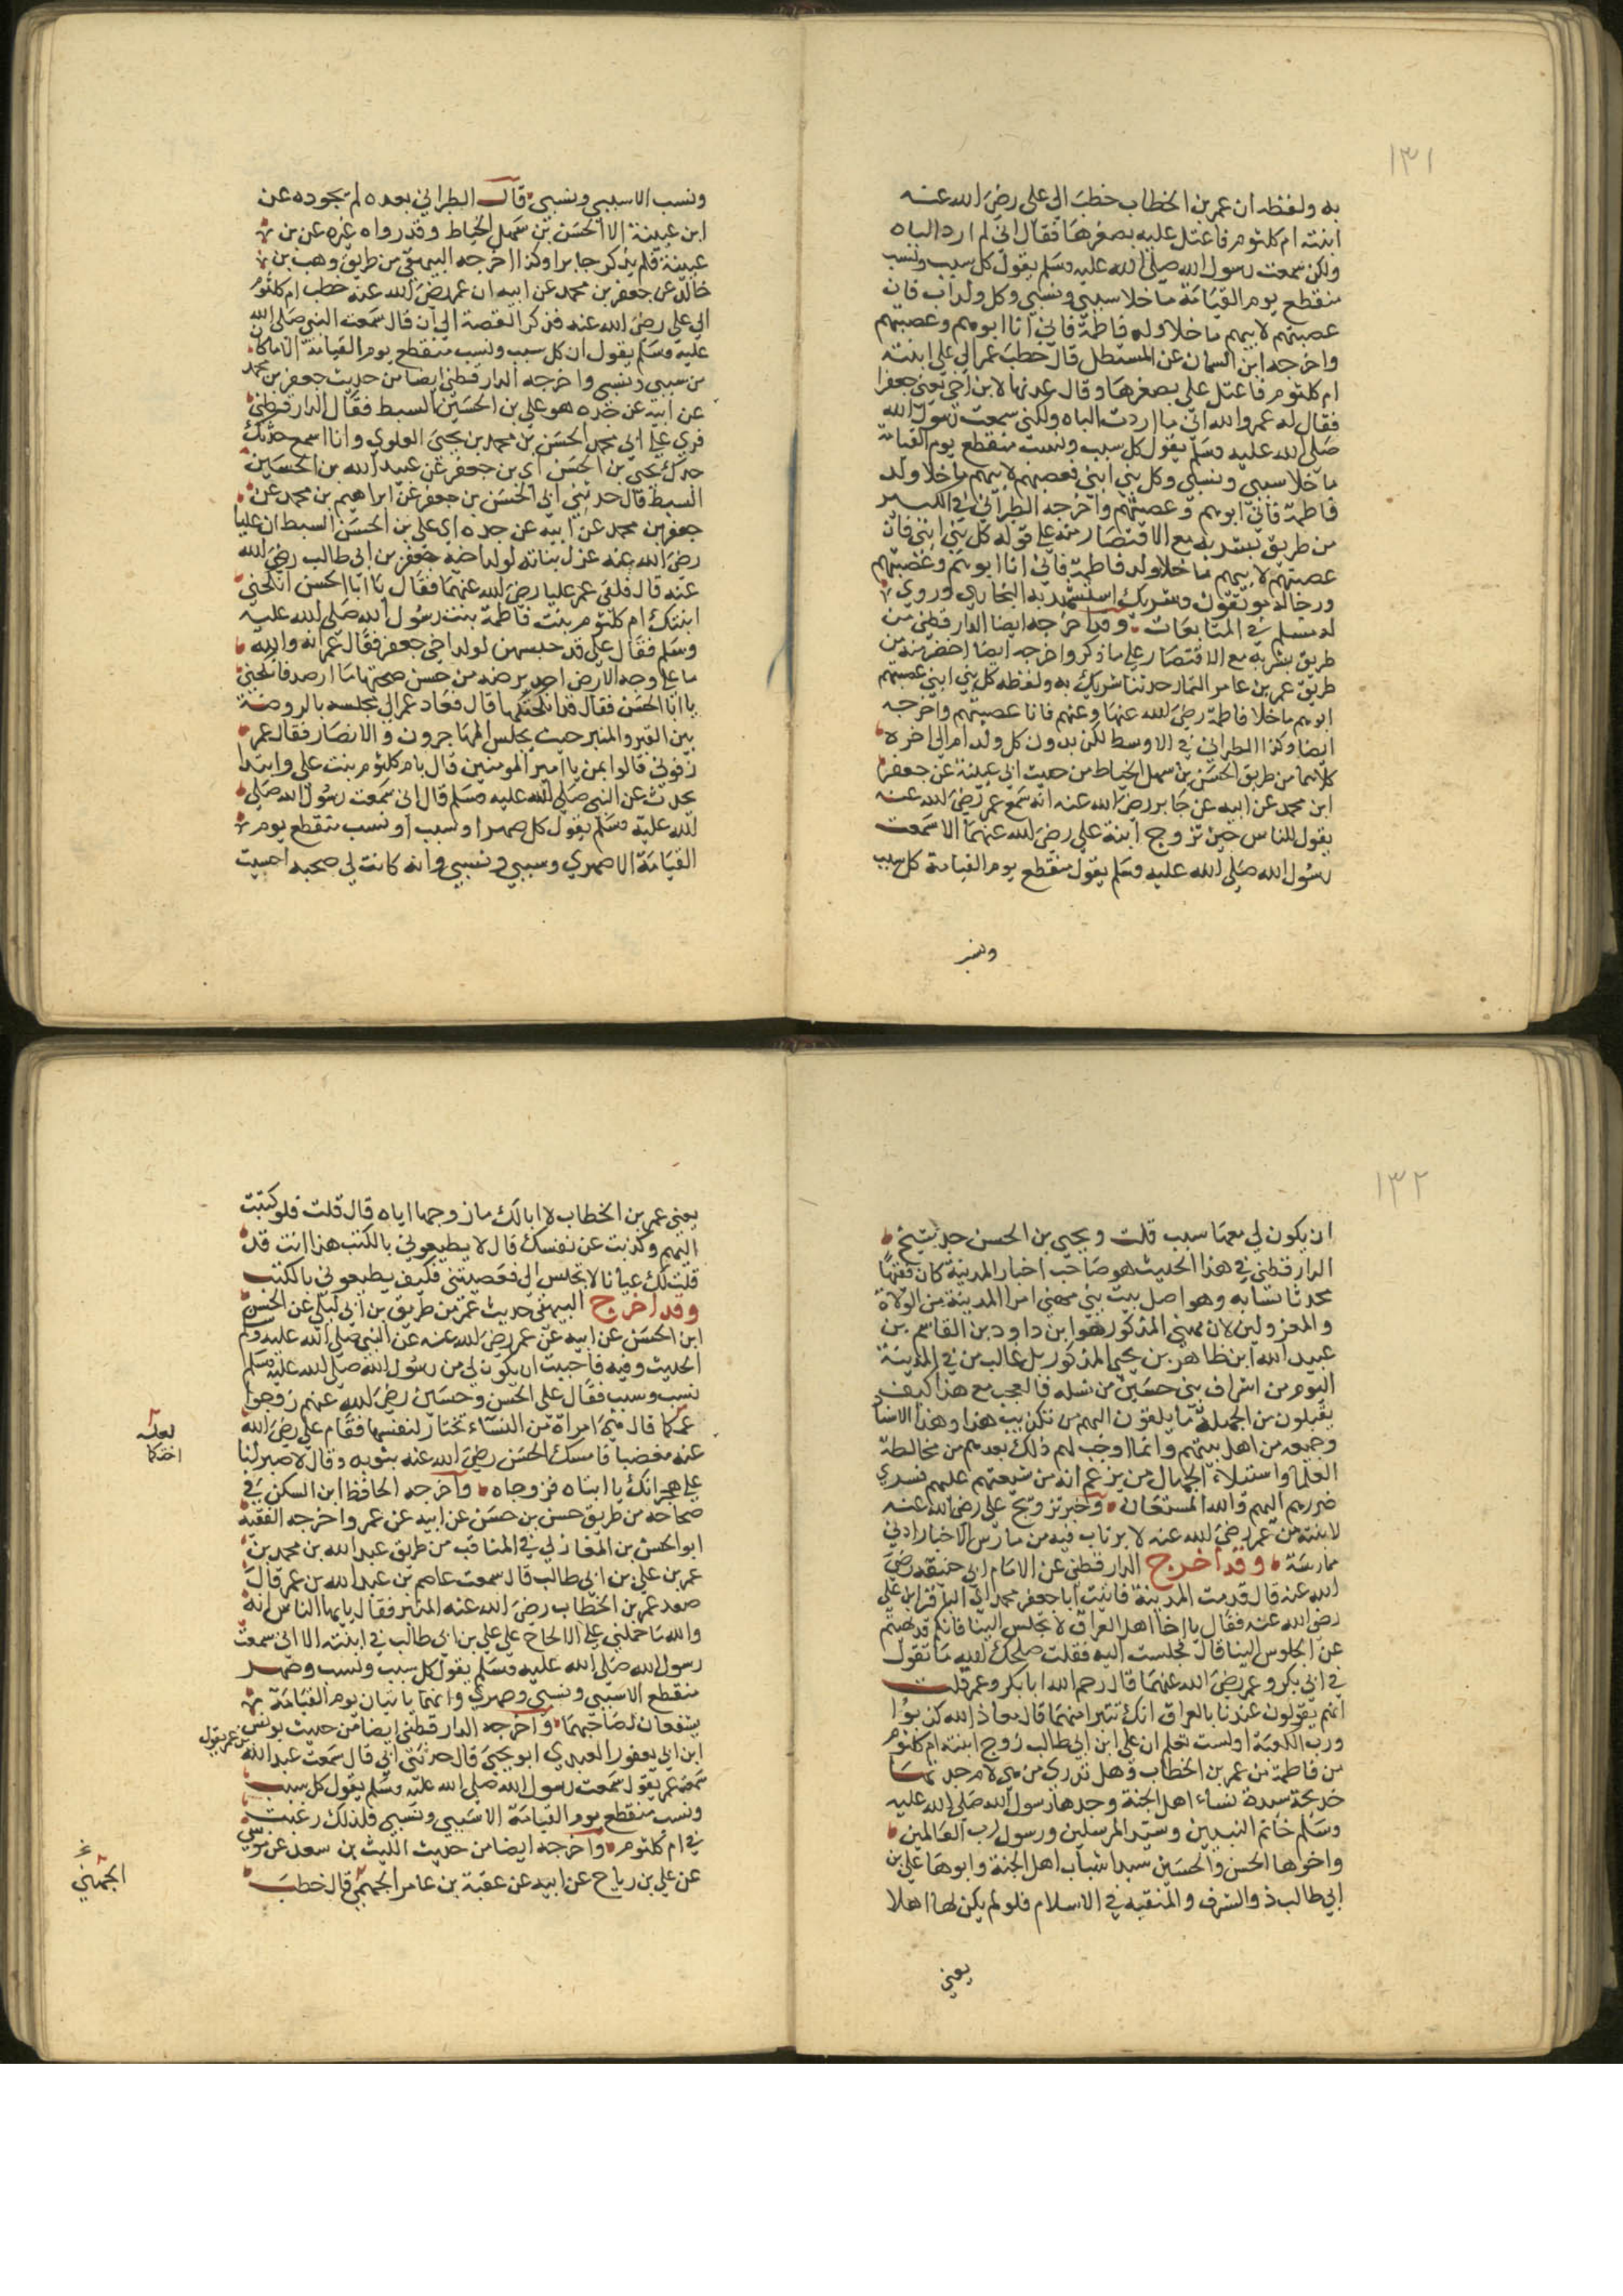 ١٣١
به ولفظه ان عمر بن الخطاب خطب الى علي رضي الله عنه
ابنته ام كلثوم فاعتل عليه بصغرها فقال اني لم ارد الباه
ولكن سمعت رسول الله صلى الله عليه وسلم يقول كل سبب ونسب
منقطع يوم القيامة ما خلا سببي ونسبي وكل ولد اب فان
عصبتهم لابيهم ما خلا ولد فاطمة فاني انا ابوهم وعصبتهم
واخرجه ابن السمان عن المستظل قال خطب عمر الى علي ابنته
ام كلثوم فاعتل علي بصغرها وقال عدتها لابن اخي يعني جعفرا
فقال له عمر والله اني ما اردت الباه ولكني سمعت رسول الله
صلى الله عليه وسلم يقول كل سبب ونسب منقطع يوم القيامة
ما خلا سببي ونسبي وكل بني ابنى فعصبتهم لابيهم ما خلا ولد
فاطمة فاني ابوهم وعصبتهم واخرجه الطبراني في الكبير
من طريق بشر به مع الاقتصار منه على قوله كل بني انثى فان
عصبتهم لابيهم ما خلا ولد فاطمة فاني انا ابوهم وعصبتهم
ورجاله موثقون وشريك استشهد به البخاري وروى
له مسلم في المتابعات وقد اخرجه ايضا الدارقطني من
طريق بشر به مع الاقتصار على ما ذكر واخرجه ايضا اخضر منه من
طريق عمر بن عامر التمار حدثنا شريك به ولفظه كل بني ابني عصبتهم
ابوهم ما خلا فاطمة رضي الله عنها وعنهم فانا عصبتهم واخرجه
ايضا وكذا الطبراني في الاوسط لكن بدون كل ولد ام الى اخره
كلاهما من طريق الحسن بن سهل الخياط من حديث ابي عيينة عن جعفر
ابن محمد عن ابيه عن جابر رضي الله عنه انه سمع عمر رضي الله عنه
يقول للناس حين تزوج ابنة علي رضي الله عنهما الا سمعت
رسول الله صلى الله عليه وسلم يقول منقطع يوم القيامة كل سبب
ونسب الا سببي ونسبي قال الطبراني بعده لم يجوده عن
ابن عيينة الا الحسن بن سهل الخياط وقد رواه غيره عن بن
عيينة فلم يذكر جابرا وكذا اخرجه البيهقي من طريق وهب بن
خالد عن جعفر بن محمد عن ابيه ان عمر رضي الله عنه خطب ام كلثوم
الى علي رضي الله عنه فذكر القصة الى ان قال سمعت النبي صلى الله
عليه وسلم يقول ان كل سبب ونسب منقطع يوم القيامة الا ما كان
من سببي ونسبي واخرجه الدارقطني ايضا من حديث جعفر بن محمد
عن ابيه عن جده هو علي بن الحسين السبط فقال الدارقطني
قري على ابي محمد الحسن بن محمد بن يحيى العلوي وانا اسمع حدثك
جدك يحيى بن الحسن اي بن جعفر عن عبيد الله بن الحسين
السبط قال حدثني ابي الحسن بن جعفر عن ابراهيم بن محمد عن
جعفر بن محمد عن ابيه عن جده اي علي بن الحسن السبط ان عليا
رضي الله عنه عزل بناته لولد اخيه جعفر بن ابي طالب رضي الله
عنه قال فلقي عمر عليا رضي الله عنهما فقال يا ابا الحسن انكحني
ابنتك ام كلثوم بنت فاطمة بنت رسول الله صلى الله عليه
وسلم فقال علي قد حبستهن لولد اخي جعفر فقال عمر انه والله
ما على وجه الارض احد يرصد من حسن صحبتها ما ارصد فانكحني
يا ابا الحسن فقال قد انكحتكها قال فعاد عمر الى مجلسه بالروضة
بين القبر والمنبر حيث يجلس المهاجرون والانصار فقال عمر
زفوني قالوا بمن يا امير المومنين قال بام كلثوم بنت علي وابتدا
يحدث عن النبي صلى الله عليه وسلم قال اني سمعت رسول الله صلى
الله عليه وسلم يقول كل صهر او سبب او نسب منقطع يوم
القيامة الا صهري وسببي ونسبي وانه كانت لي صحبه احببت
١٣٢
ان يكون لي معها سبب قلت ويحيى بن الحسن جد شيخ
الدارقطني في هذا الحديث هو صاحب اخبار المدينة كان فقيها
محدثا نسابه وهو اصل بيت بني مهنى امرا المدينة من الولاة
والمعزولين لان مهنى المذكور هو ابن داود بن القاسم بن
عبيد الله ابن طاهر بن يحيى المذكور بل غالب من في المدينة
اليوم من اشراف بني حسين من نسله فالعجب مع هذا كيف
يقبلون من الجهلة ما يلقون اليهم من تكذيب هذا وهذا الاسناد
وجميعه من اهل بيتهم وانما اوجب لهم ذلك بعدهم من مخالطة
العلما واستيلاء الجهال من يزعم انه من شيعتهم عليهم فسرى
ضررهم اليهم والله المستعان وخبر تزويج علي رضي الله عنه
لابنته من عمر رضي الله عنه لا يرتاب فيه من مارس الاخبار ادنى
ممارسة وقد اخرج الدارقطني عن الامام ابي حنيفة رضي
الله عنه قال قدمت المدينة فاتيت ابا جعفر محمد اي الباقر ابن علي
رضي الله عنه فقال يا اخا اهل العراق لا تجلس الينا فانكم قد نهيتم
عن الجلوس الينا قال فجلست اليه فقلت اصلحك الله ما تقول
في ابي بكر وعمر رضي الله عنهما قال رحم الله ابا بكر وعمر قلت
انهم يقولون عندنا بالعراق انك تتبرا منهما قال معاذ الله كذبوا
ورب الكعبة اولست تعلم ان علي ابن ابي طالب زوج ابنته ام كلثوم
من فاطمة من عمر بن الخطاب وهل تدري من هي لا ام جدتها
خديجة سيدة نساء اهل الجنة وجدها رسول الله صلى الله عليه
وسلم خاتم النبيين وسيد المرسلين ورسول رب العالمين
واخوها الحسن والحسين سيدا شباب اهل الجنة وابوها علي بن
ابي طالب ذو الشرف والمنقبه في الاسلام فلو لم يكن لها اهلا
يعني
يعني عمر بن الخطاب لا ابالك ما زوجها اياه قال قلت فلو كتبت
اليهم وكذبت عن نفسك قال لا يطيعوني بالكتب هذا انت قد
قلت لك عيانا لا تجلس الي فعصيتني فكيف يطيعوني بالكتب
وقد اخرج البيهقي حديث عمر من طريق بن ابي ليلى عن الحسن
ابن الحسن عن ابيه عن عمر رضي الله عنه عن النبي صلى الله عليه وسلم
الحديث وفيه فاحببت ان يكون لي من رسول الله صلى الله عليه وسلم
نسب وسبب فقال علي الحسن وحسين رضي الله عنهم زوجوا
عمكما قال هي امراة من النساء تختار لنفسها فقام علي رضي الله
عنه مغضبا فامسك الحسن رضي الله عنه بثوبه وقال لا صبر لنا
على هجرانك يا ابتاه فزوجاه واخرجه الحافظ ابن السكن في
صحاحه من طريق حسن بن حسن عن ابيه عن عمر واخرجه الفقيه
ابو الحسن بن المغازلي في المناقب من طريق عبد الله بن محمد بن
عمر بن علي بن ابي طالب قال سمعت عاصم بن عبد الله بن عمر قال
صعد عمر بن الخطاب رضي الله عنه المنبر فقال يا ايها الناس انه
والله ما حملني على الالحاح على علي بن ابي طالب في ابنته الا اني سمعت
رسول الله صلى الله عليه وسلم يقول كل سبب ونسب وصهر
منقطع الا سببي ونسبي وصهري وانهما ياتيان يوم القيامة
يشفعان لصاحبهما واخرجه الدارقطني ايضا من حديث يونس
ابن ابي يعفور العبدي ابو يحيى قال حدثني ابي قال سمعت عبد الله بن عمر يقول
سمعت عمر يقول سمعت رسول الله صلى الله عليه وسلم يقول كل سبب
ونسب منقطع يوم القيامة الا سببي ونسبي فلذلك رغبت
في ام كلثوم واخرجه ايضا من حديث الليث بن سعد عن موسى
عن علي بن رباح عن ابيه عن عقبة بن عامر الجهني قال خطب
الجهني